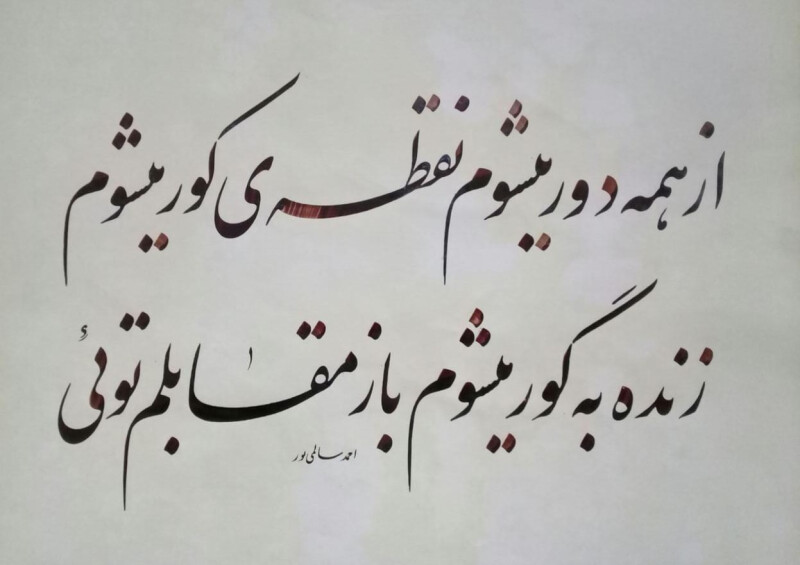 از همه دور میشوم نقطه ی کور میشوم
زنده به گور میشوم باز مقابلم توئی
احمد سالمی پور